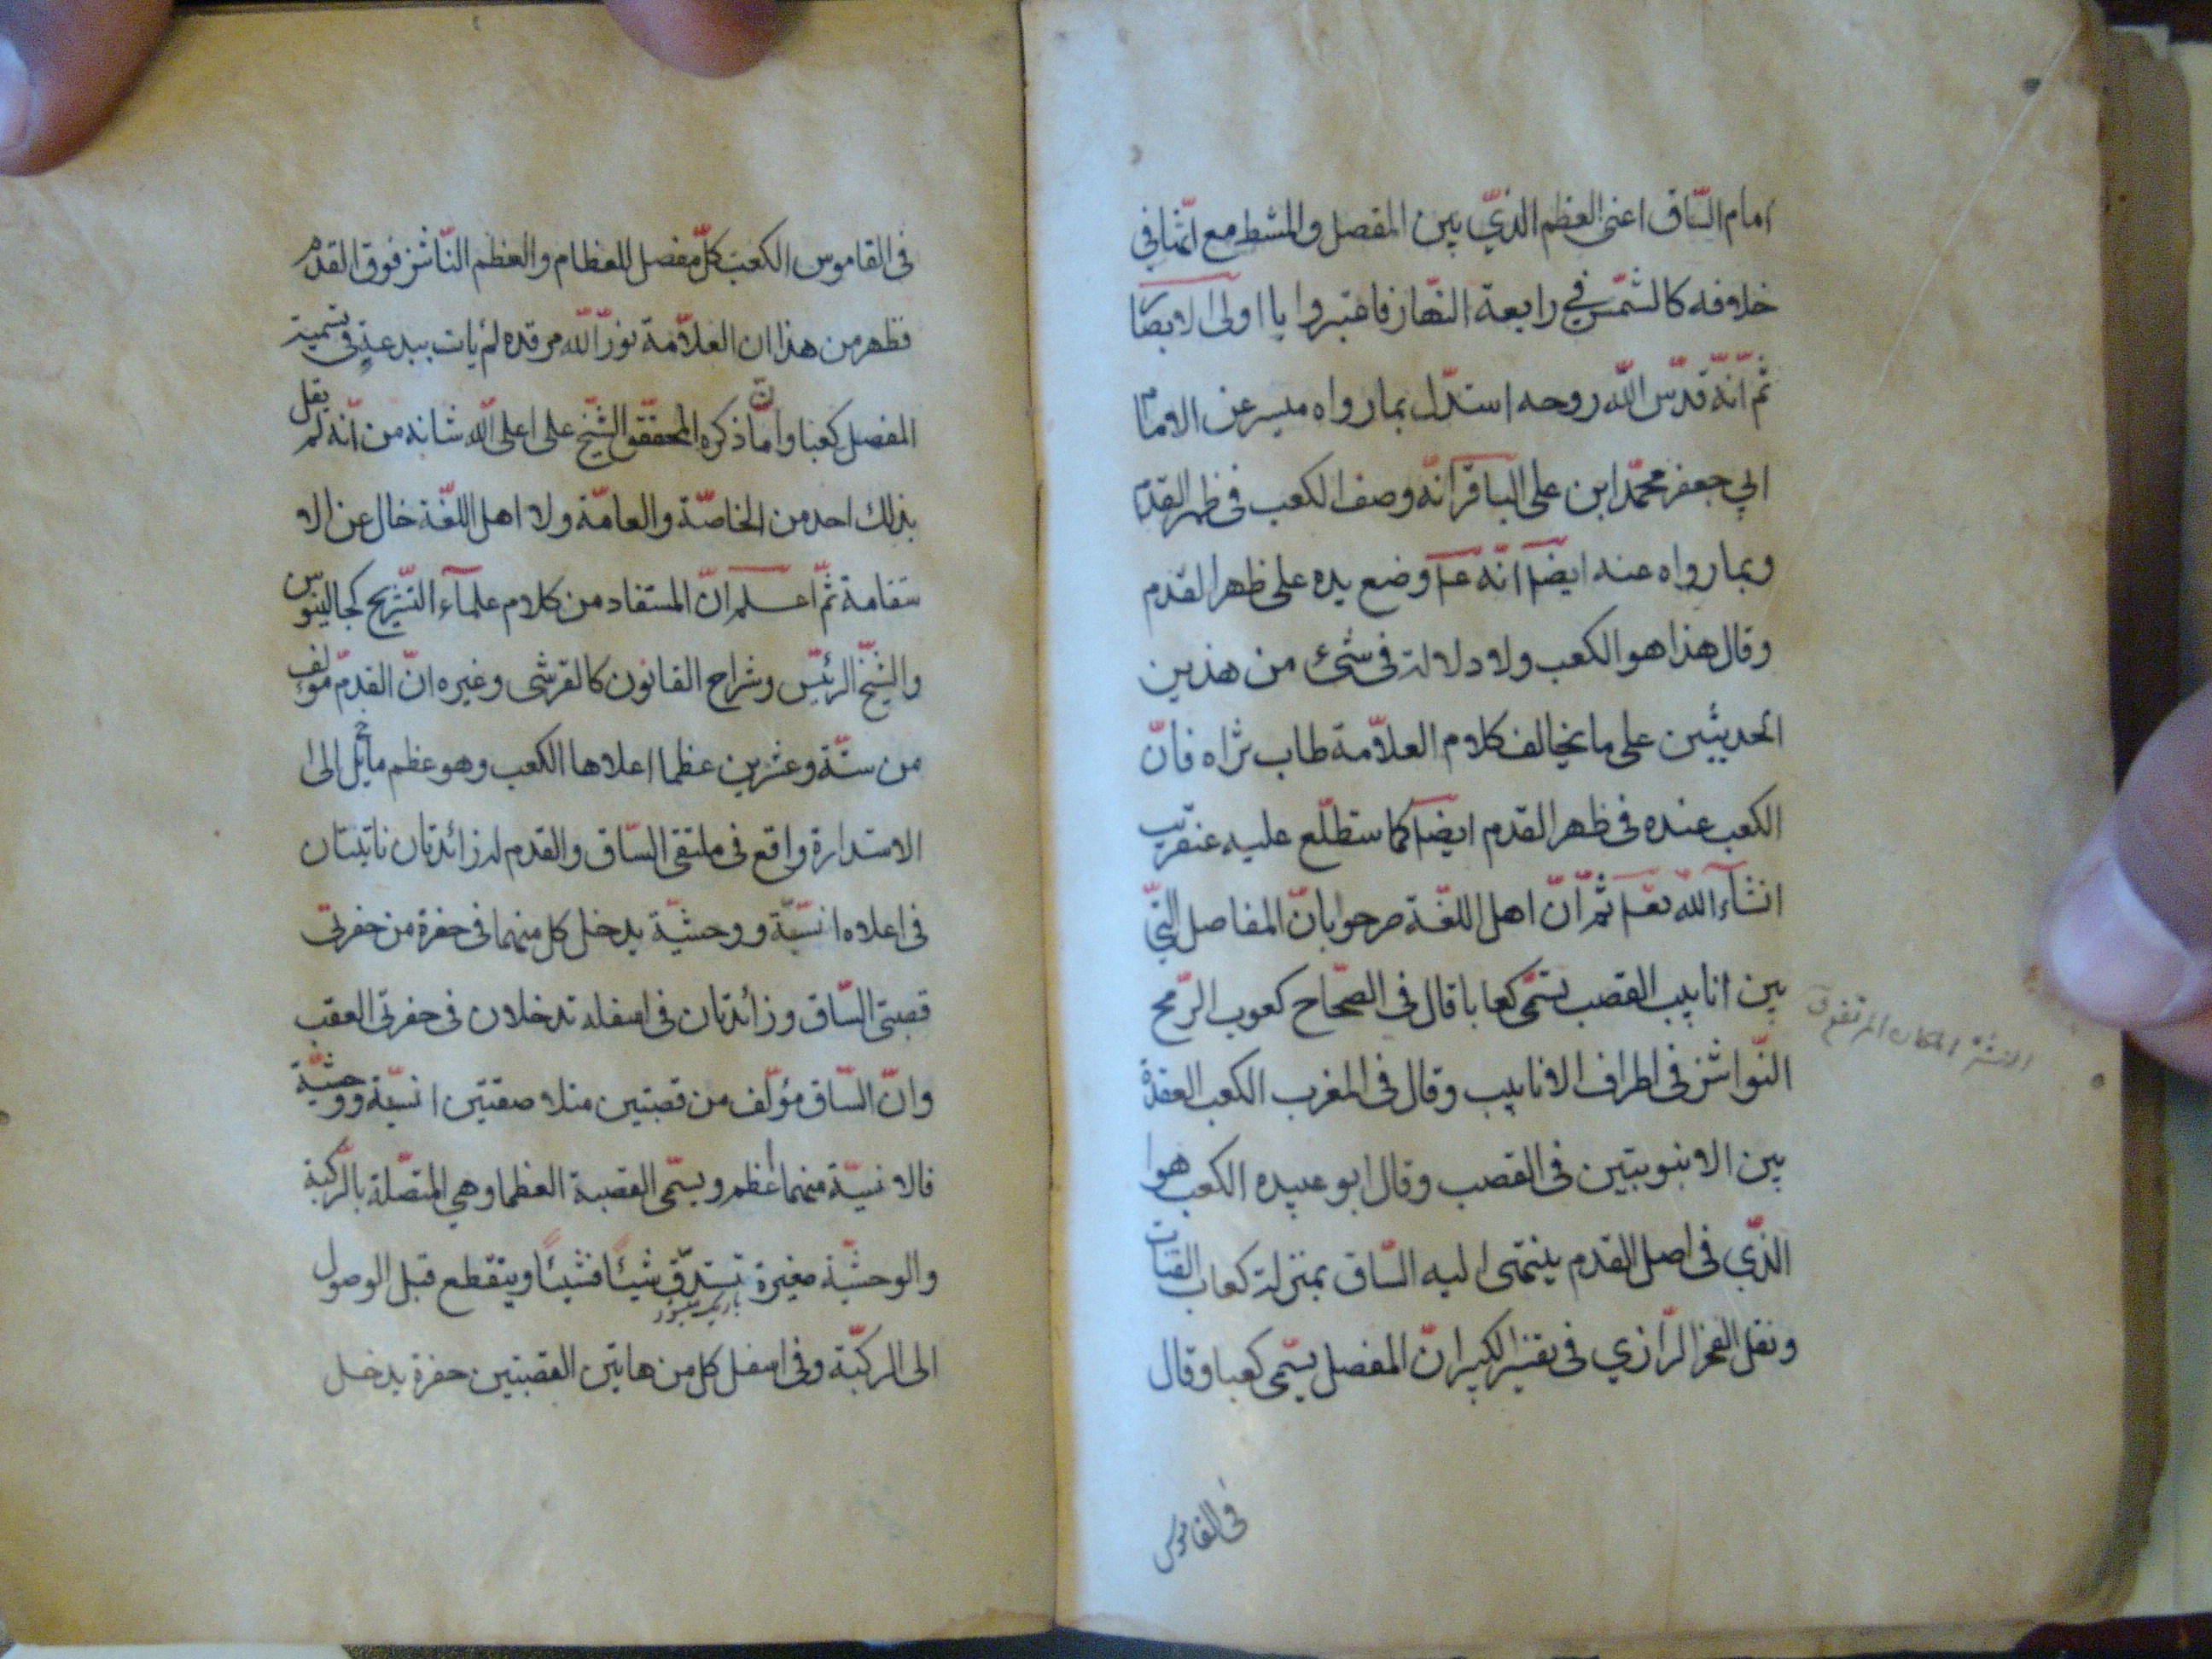 امام السّاق اعنى العظم الذيّ بين المفصل والمشط مع انّها فى
خلافه كالشمّس فى رابعة النّهار فاعتبروا يا اولى الابصار
ثمّ انّه قدّس اللّه روحه استدّل بما رواه ميسر عن الامام
ابي جعفر محمّد ابن على الباقر انّه وصف الكعب فى ظهر القدم
وبما رواه عنه ايضا انّه عم وضع يده على ظهر القدم
وقال هذا هو الكعب ولا دلالة فى شئ من هذين
الحديثين على ما يخالف كلام العلاّمة طاب ثراه فانّ
الكعب عنده فى ظهر القدم ايضا كما ستطلّع عليه عنقريب
انشآء اللّه تعـ ثمّ انّ اهل اللغّة صرحوا بانّ المفاصل التّى
بين انابيب القصب تسمّى كعابا قال فى الصّحاح كعوب الرّمح
النّواشز فى اطراف الانابيب وقال فى المغرب الكعب العقدة
بين الانبوبتين فى القصب وقال ابو عبيده الكعب هو
الذّي فى اصل القدم ينتهى اليه السّاق بمنزلة كعاب القنات
ونقل الفخر الرّازي فى تفسير الكبير انّ المفصل يسمّى كعبا وقال
فى القاموس
النشز المكان المرتفع
فى القاموس الكعب كلّ مفصل للعظام والعظم النّاشز فوق القدم
فظهر من هذا ان العلاّمة نوّر اللّه مرقده لم يات ببدعةٍ فى تسمية
المفصل كعبا وامّا ذكره المحقّق الشّيخ على اعلى اللّه شانه من انّه لم يقل
بذلك احد من الخاصّة والعامّة ولا اهل اللغّة خال عن الا
ستقامة ثمّ اعلم انّ المستفاد من كلام علمآء التّشريح كجالينوس
والشّيخ الرئيس وشراح القانون كالقرشى وغيره انّ القدم مؤلف
من ستّة وعشرين عظما اعلاها الكعب وهو عظم مائل الى
الاستدارة واقع فى ملتقى السّاق والقدم له زائدتان ناتيتان
فى اعلاه انسيّة ووحشيّة يدخل كل منهما فى حفرة من حفرتى
قصبتى السّاق وزائدتان فى اسفله تدخلان فى حفرتى العقب
وانّ السّاق مؤلّف من قصبتين متلاصقتين انسيّة ووحشيّة
فالانسيّة منهما اعظم ويسمّى القصبة العظما وهى المتصّلة بالرّكبة
والوحشيّة صغيرة تستدقّ شيئًا فشيئًا وينقطع قبل الوصول
باريك ميشود
الى الركبّة وفى اسفل كل من هاتين القصبتين حفرة يدخل